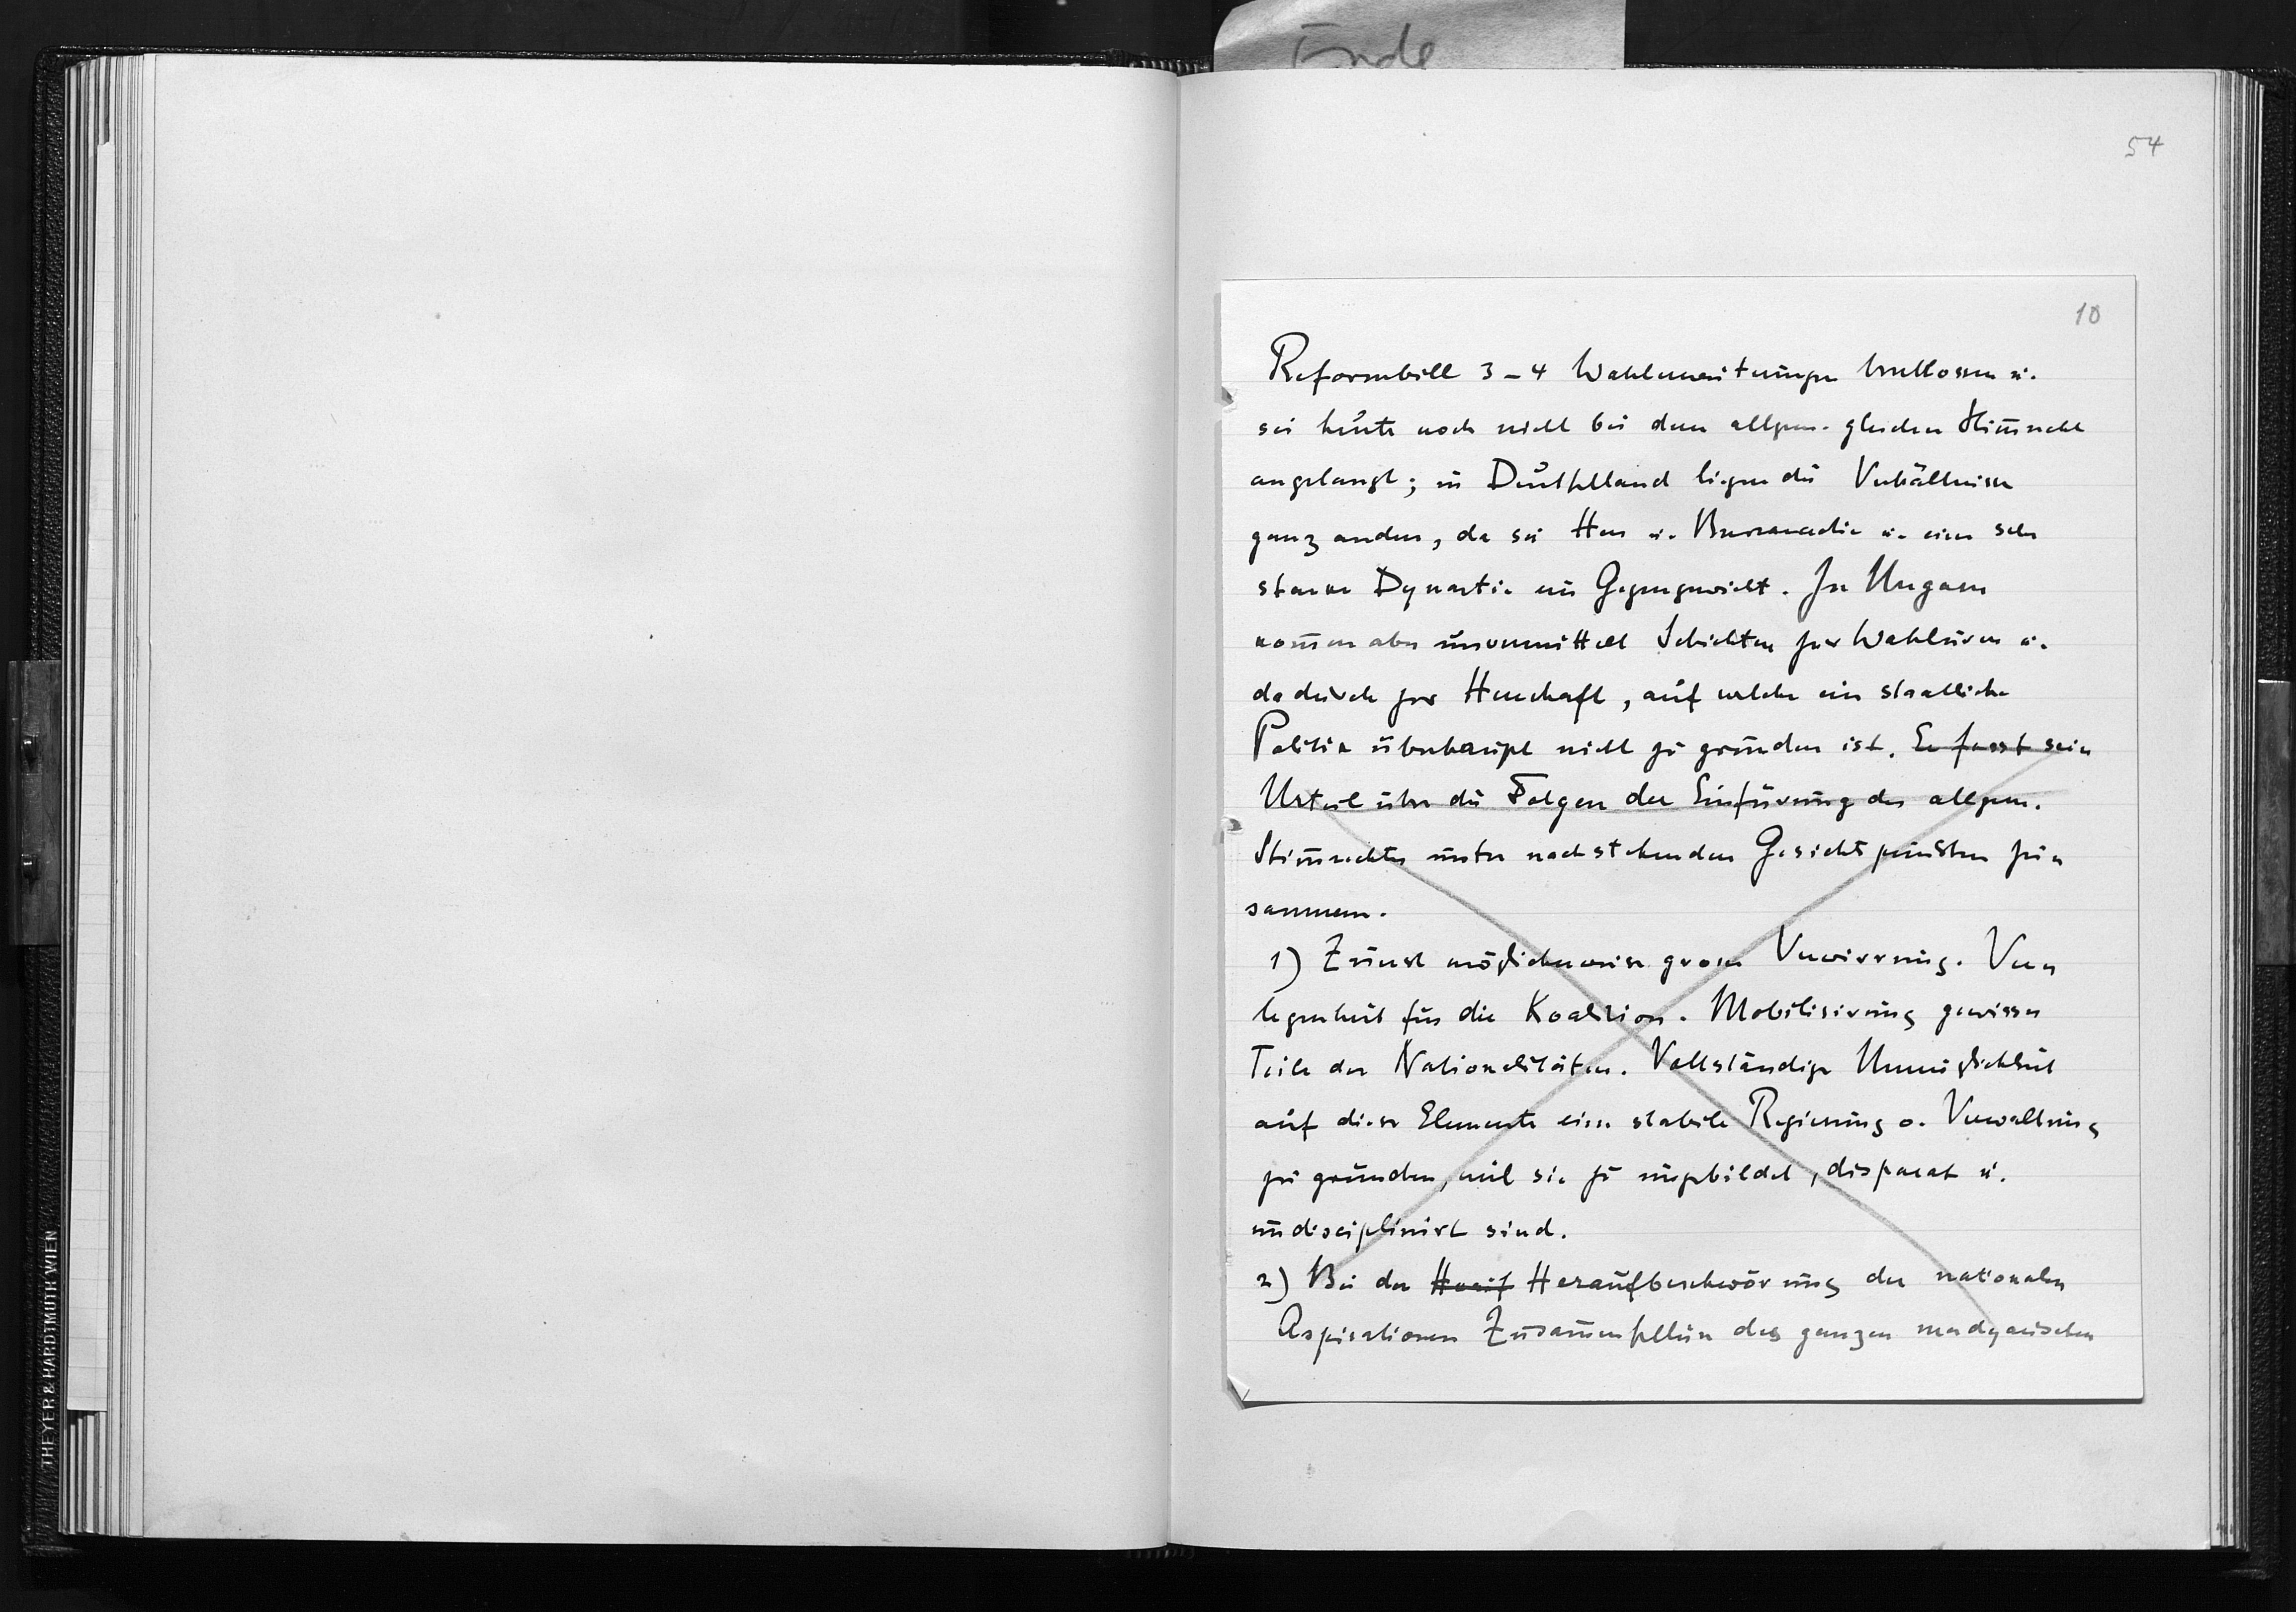 Ende
54
10
Reformbill 3–4 Wahlerweiterungen verflossen u.
sei heute noch nicht bei dem allgem. gleichen Stim̄recht
angelangt; in Deutschland liegen die Verhältnisse
ganz anders, da sei Heer u. Bureaucratie u. eine sehr
starke Dynastie ein Gegengewicht. In Ungarn
kom̄en aber unvermittelt Schichten zur Wahlurne u.
dadurch zur Herrschaft, auf welche eine staatliche
Politik überhaupt nicht zu gründen ist. Er fasst sein
Urteil über die Folgen der Einfürung des allgem.
Stim̄rechtes unter nachstehenden Gesichtspunkten zu-
sammen.
1) Zuerst möglicherweise grosse Verwirrung. Ver-
legenheit für die Koalition. Mobilisirung gewisser
Teile der Nationalitäten. Vollständige Unmöglichkeit
auf diese Elemente eine stabile Regierung o. Verwaltung
zu gründen, weil sie zu ungebildet, disparat u.
undisciplinirt sind.
2) Bei der Herauf Heraufbeschwörung der nationalen
Aspirationen Zusam̄enschluss des ganzen madyarischen
THEYER & HARDTMUTH WIEN